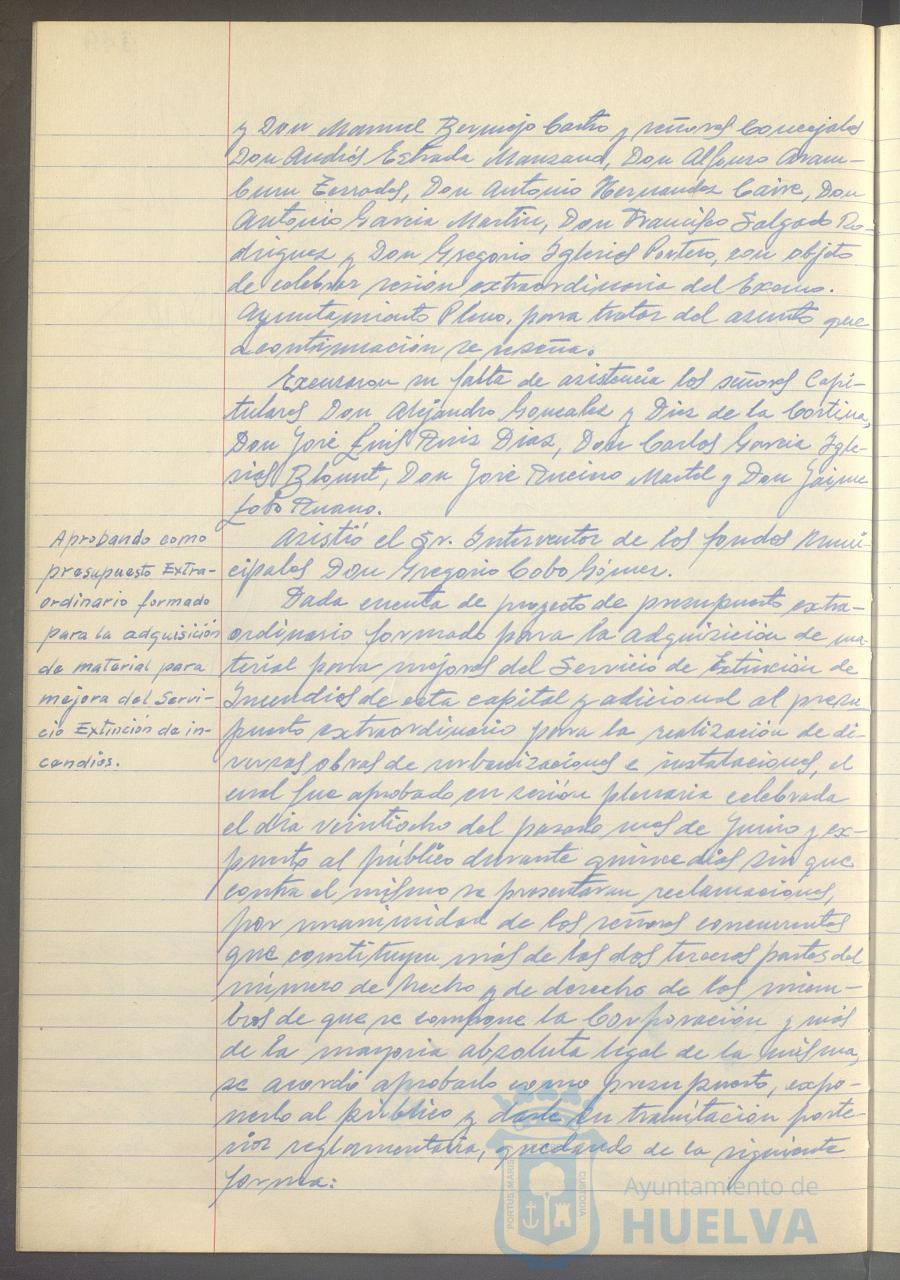 y Don Manuel Bermejo Castro y señores Concejales
Don Andrés Estrada Manzano, Don Alfonso Aram-
buru Terrades, Don Antonio Hernandez Caire, Don
Antonio Garcia Martin, Don Francisco Salgado Ro-
driguez y Don Gregorio Iglesias Portero, con objeto
de celebrar sesión extraordinaria del Excmo.
Ayuntamiento Pleno, para tratar del asunto que
a continuación se reseña.
Excusaron su falta de asistencia los señores Capi-
tulares Don Alejandro Gonzalez y Diez de la Cortina,
Don José Luis Ruiz Diaz, Don Carlos Garcia Igle-
sias, Don José Martel y Don Jaime
Lobo Ruano.
Asistió el Sr. Interventor de los fondos Muni-
cipales Don Gregorio Cobo Gómez.
Aprobando como
presupuesto Extra-
ordinario formado
para la adquisición
de material para
mejora del Servi-
cio Extinción de in-
cendios.
Dada cuenta de proyecto de presupuesto extra-
ordinario formado para la adquisición de ma-
terial para mejoras del Servicio de Extinción de
Incendios de esta capital y adicional al presu-
puesto extraordinario para la realización de di-
versas obras de urbanizaciones e instalaciones, el
cual fue aprobado en sesión plenaria celebrada
el dia veintiocho del pasado mes de Junio y ex-
puesto al público durante quince dias sin que
contra el mismo se presentaran reclamaciones,
por unanimidad de los señores concurrentes
que constituyen más de las dos terceras partes del
número de hecho y de derecho de los miem-
bros de que se compone la Corporación y más
de la mayoria absoluta legal de la misma,
se acordó aprobarlo como presupuesto, expo-
nerlo al público y darle la tramitación poste-
rior reglamentaria, quedando de la siguiente
forma:
PORTUS MARIS
CUSTODIA
Ayuntamiento de
HUELVA